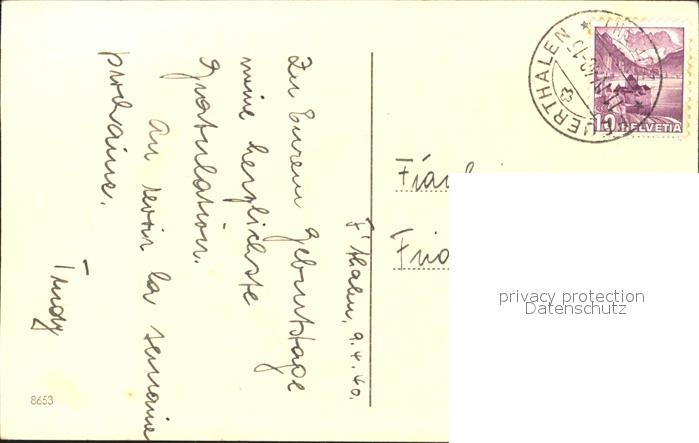 F'thalen, 9.4.40.
Zu Eurem Geburtstage
meine herzlichste
Gratulation.
Au revoir la semaine
prochaine.
Trudy
8653
FEUERTHALEN
10 HELVETIA
privacy protection
Datenschutz